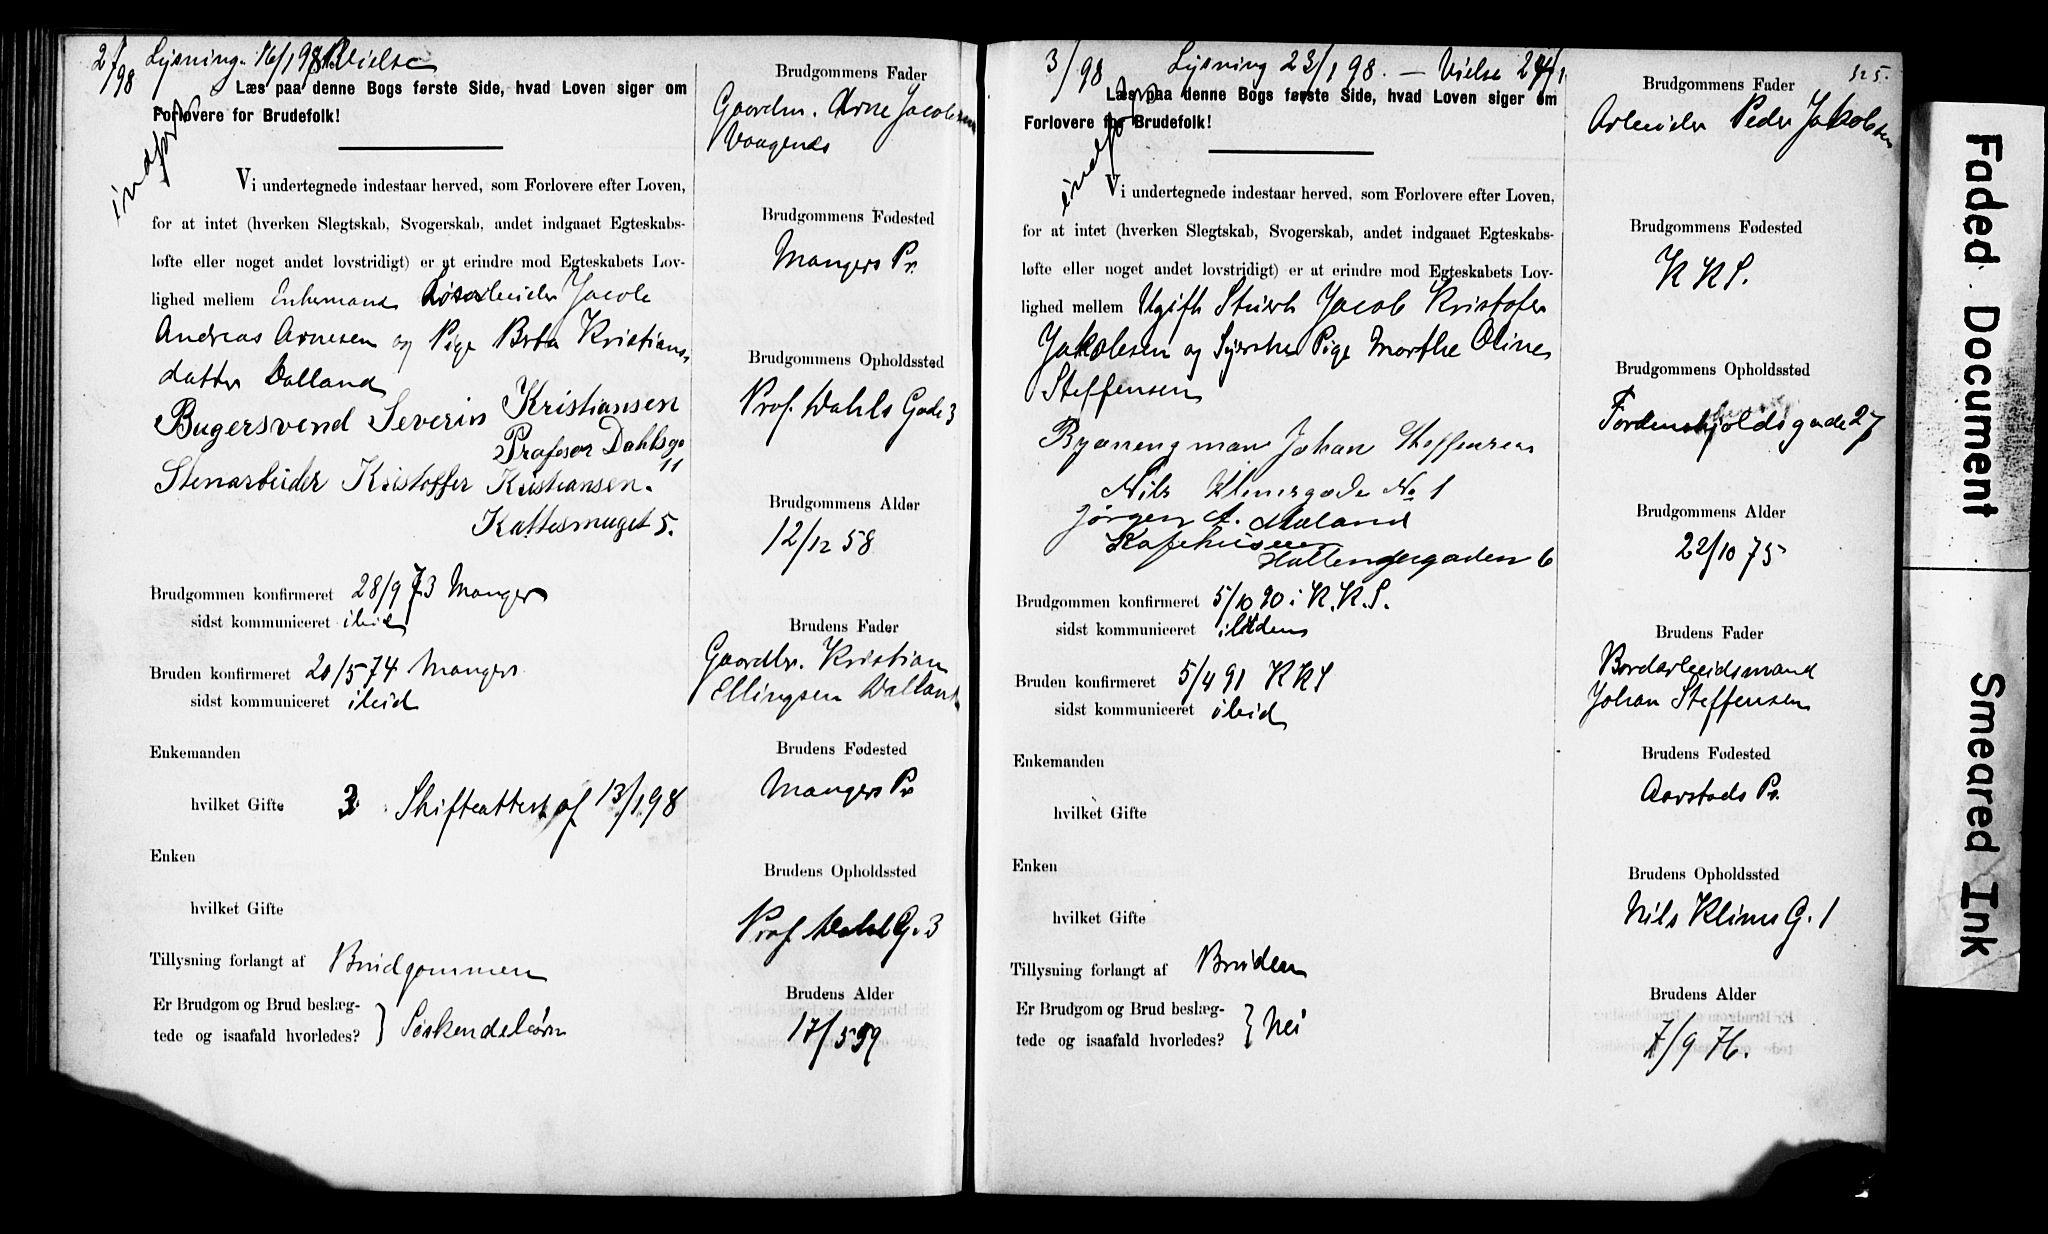 2/98 Lysning. 16/1 98. Vielse
indført
Læs paa denne Bogs første Side, hvad Loven siger om
Forlovere for Brudefolk!
Vi undertegnede indestaar herved, som Forlovere efter Loven,
for at intet (hverken Slegtskab, Svogerskab, andet indgaaet Egteskabs-
løfte eller noget andet lovstridigt) er at erindre mod Egteskabets Lov-
lighed mellem Enkemand Løsarbeider Jacob
Andreas Arnesen og Pige Brta Kristians-
datter Dalland
Bugersvend Severin Kristiansen
Profesor Dahlsga
11
Stenarbeider Kristoffer Kristiansen.
Kattesmuget 5.
Brudgommen konfirmeret 28/9 73 Manger
sidst kommuniceret ibid
Bruden konfirmeret 20/5 74 Manger
sidst kommuniceret ibid
Enkemanden
hvilket Gifte 3. Skifteattest af 13/1 98
Enken
hvilket Gifte
Tillysning forlangt af Brudgommen
Er Brudgom og Brud beslæg-
tede og isaafald hvorledes? } Søskendebørn
Brudgommens Fader
Gaardbr. Arne Jacobsen
Vaagenes
Brudgommens Fødested
Mangers Pr.
Brudgommens Opholdssted
Prof. Dahls Gade 3
Brudgommens Alder
12/12 58
Brudens Fader
Gaardbr. Kristian
Ellingsen Dalland
Brudens Fødested
Mangers Pr
Brudens Opholdssted
Prof. Dahl G. 3
Brudens Alder
17/5 59
3/98 Lysning 23/1 98. — Vielse 24/1
325.
indført
Læs paa denne Bogs første Side, hvad Loven siger om
Forlovere for Brudefolk!
Vi undertegnede indestaar herved, som Forlovere efter Loven,
for at intet (hverken Slegtskab, Svogerskab, andet indgaaet Egteskabs-
løfte eller noget andet lovstridigt) er at erindre mod Egteskabets Lov-
lighed mellem Ugift Stuert Jacob Kristofer
Jakobsen og Syerske Pige Marthe Oline
Steffensen
Johan Steffensen
Nils Klimsgade No 1
Jørgen A. Mæland
Hollendergaden 6
Brudgommen konfirmeret 5/10 90 i K.K.S.
sidst kommuniceret ibidem
Bruden konfirmeret 5/4 91 KKS
sidst kommuniceret ibid
Enkemanden
hvilket Gifte
Enken
hvilket Gifte
Tillysning forlangt af Bruden
Er Brudgom og Brud beslæg-
tede og isaafald hvorledes? } Nei
Brudgommens Fader
Arbeider Peder Jakobsen
Brudgommens Fødested
KKS.
Brudgommens Opholdssted
Tordenskjoldsgade 27
Brudgommens Alder
22/10 75
Brudens Fader
Bordarbeidsmand
Johan Steffensen
Brudens Fødested
Aarstads Pr.
Brudens Opholdssted
Nils Klims G. 1
Brudens Alder
7/9 76.
Faded Document
Smeared Ink